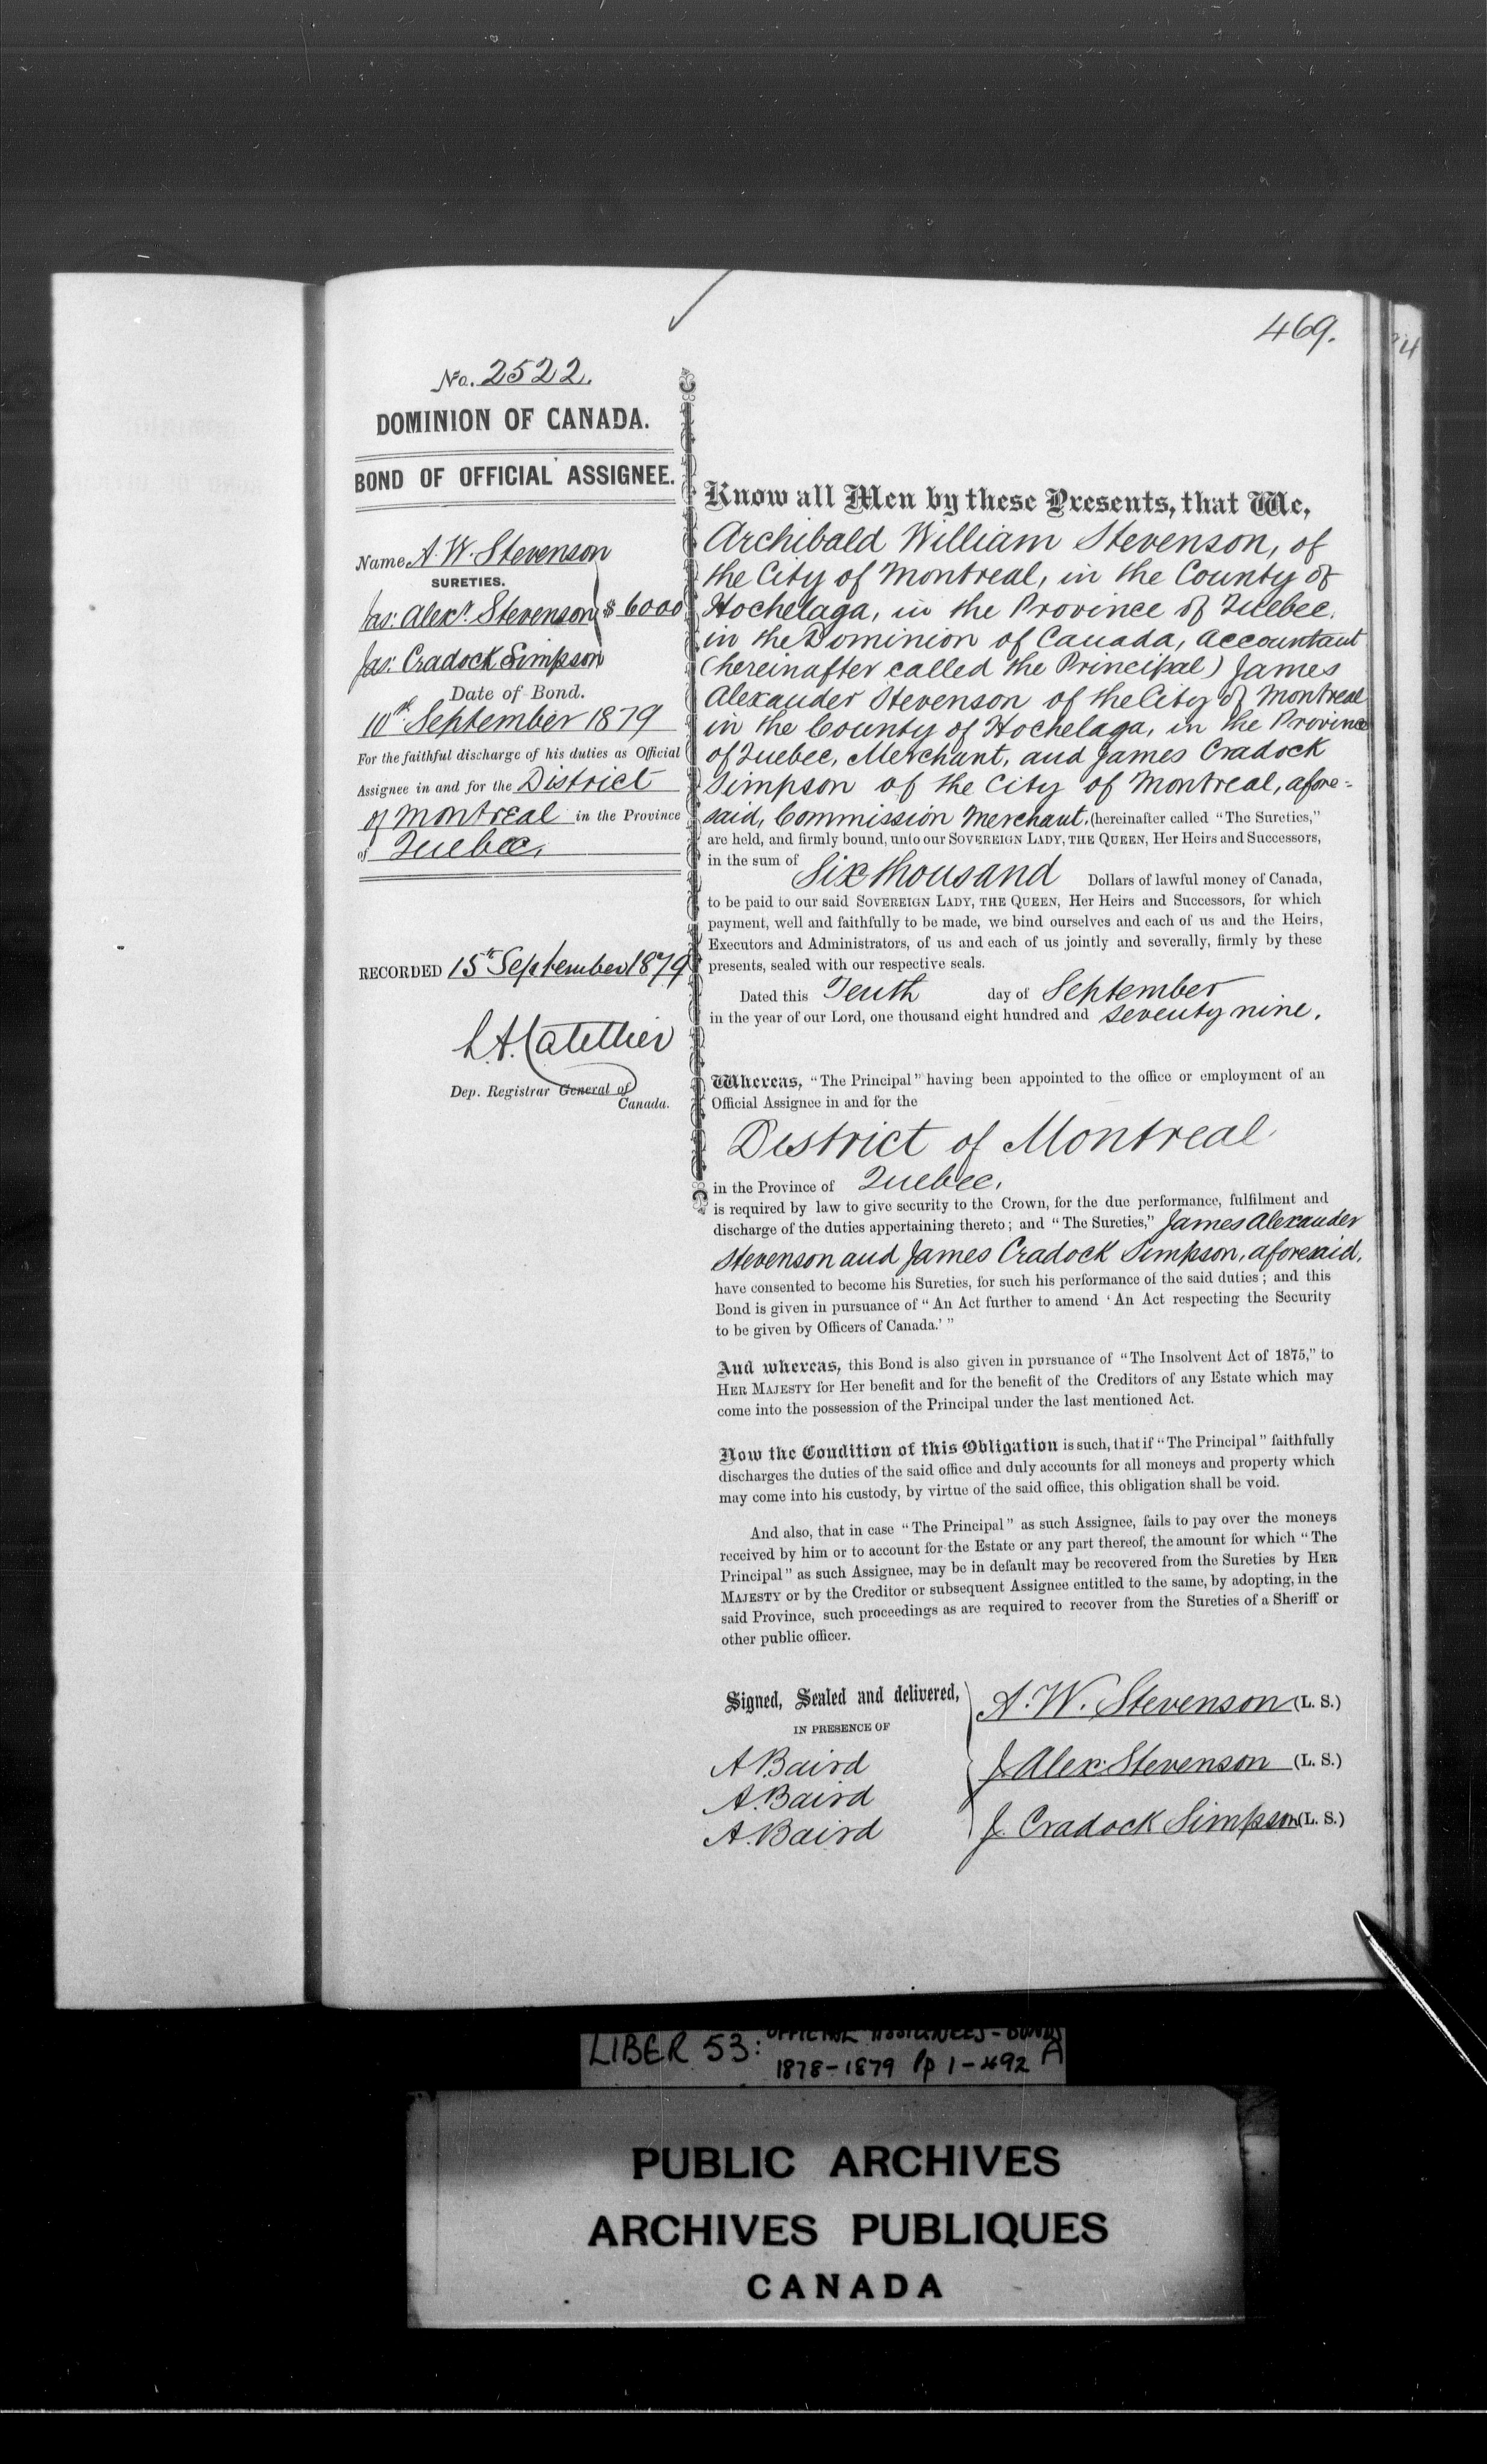 469.
No. 2522.
DOMINION OF CANADA.
BOND OF OFFICIAL ASSIGNEE.
Name A. W. Stevenson
SURETIES.
Jas: Alexr. Stevenson $ 6000
Jas: Cradock Simpson
Date of Bond.
10th September 1879
For the faithful discharge of his duties as Official
Assignee in and for the District
of Montreal in the Province
of Quebec.
RECORDED 15th September 1879
L.A. Catellier
Dep. Registrar General of
Canada.
Know all Men by these Presents, that We,
Archibald William Stevenson, of
the City of Montreal, in the County of
Hochelaga, in the Province of Quebec.
in the Dominion of Canada, accountant
(hereinafter called the Principal) James
Alexander Stevenson of the City of Montreal
in the County of Hochelaga, in the Province
of Quebec, Merchant, and James Cradock
Simpson of the City of Montreal, afore-
said, Commission Merchant. (hereinafter called "The Sureties,"
are held, and firmly bound, unto our SOVEREIGN LADY, THE QUEEN, Her Heirs and Successors,
in the sum of Six thousand Dollars of lawful money of Canada,
to be paid to our said SOVEREIGN LADY, THE QUEEN, Her Heirs and Successors, for which
payment, well and faithfully to be made, we bind ourselves and each of us and the Heirs,
Executors and Administrators, of us and each of us jointly and severally, firmly by these
presents, sealed with our respective seals.
Dated this Tenth day of September
in the year of our Lord, one thousand eight hundred and seventy nine.
Whereas, "The Principal" having been appointed to the office or employment of an
Official Assignee in and for the
District of Montreal
in the Province of Quebec.
is required by law to give security to the Crown, for the due performance, fulfilment and
discharge of the duties appertaining thereto; and "The Sureties," James Alexander
Stevenson and James Cradock Simpson, aforesaid,
have consented to become his Sureties, for such his performance of the said duties; and this
Bond is given in pursuance of "An Act further to amend 'An Act respecting the Security
to be given by Officers of Canada.'"
And whereas, this Bond is also given in pursuance of "The Insolvent Act of 1875," to
HER MAJESTY for Her benefit and for the benefit of the Creditors of any Estate which may
come into the possession of the Principal under the last mentioned Act.
Now the Condition of this Obligation is such, that if "The Principal" faithfully
discharges the duties of the said office and duly accounts for all moneys and property which
may come into his custody, by virtue of the said office, this obligation shall be void.
And also, that in case "The Principal" as such Assignee, fails to pay over the moneys
received by him or to account for the Estate or any part thereof, the amount for which "The
Principal" as such Assignee, may be in default may be recovered from the Sureties by HER
MAJESTY or by the Creditor or subsequent Assignee entitled to the same, by adopting, in the
said Province, such proceedings as are required to recover from the Sureties of a Sheriff or
other public officer.
Signed, Sealed and delivered,
IN PRESENCE OF
A Baird
A. Baird
A. Baird
A. W. Stevenson (L. S.)
J. Alex: Stevenson (L. S.)
J. Cradock Simpson (L. S.)
LIBER 53: OFFICIAL ASSIGNEES - BONDS
1878-1879 Pp 1-492 A
PUBLIC ARCHIVES
ARCHIVES PUBLIQUES
CANADA